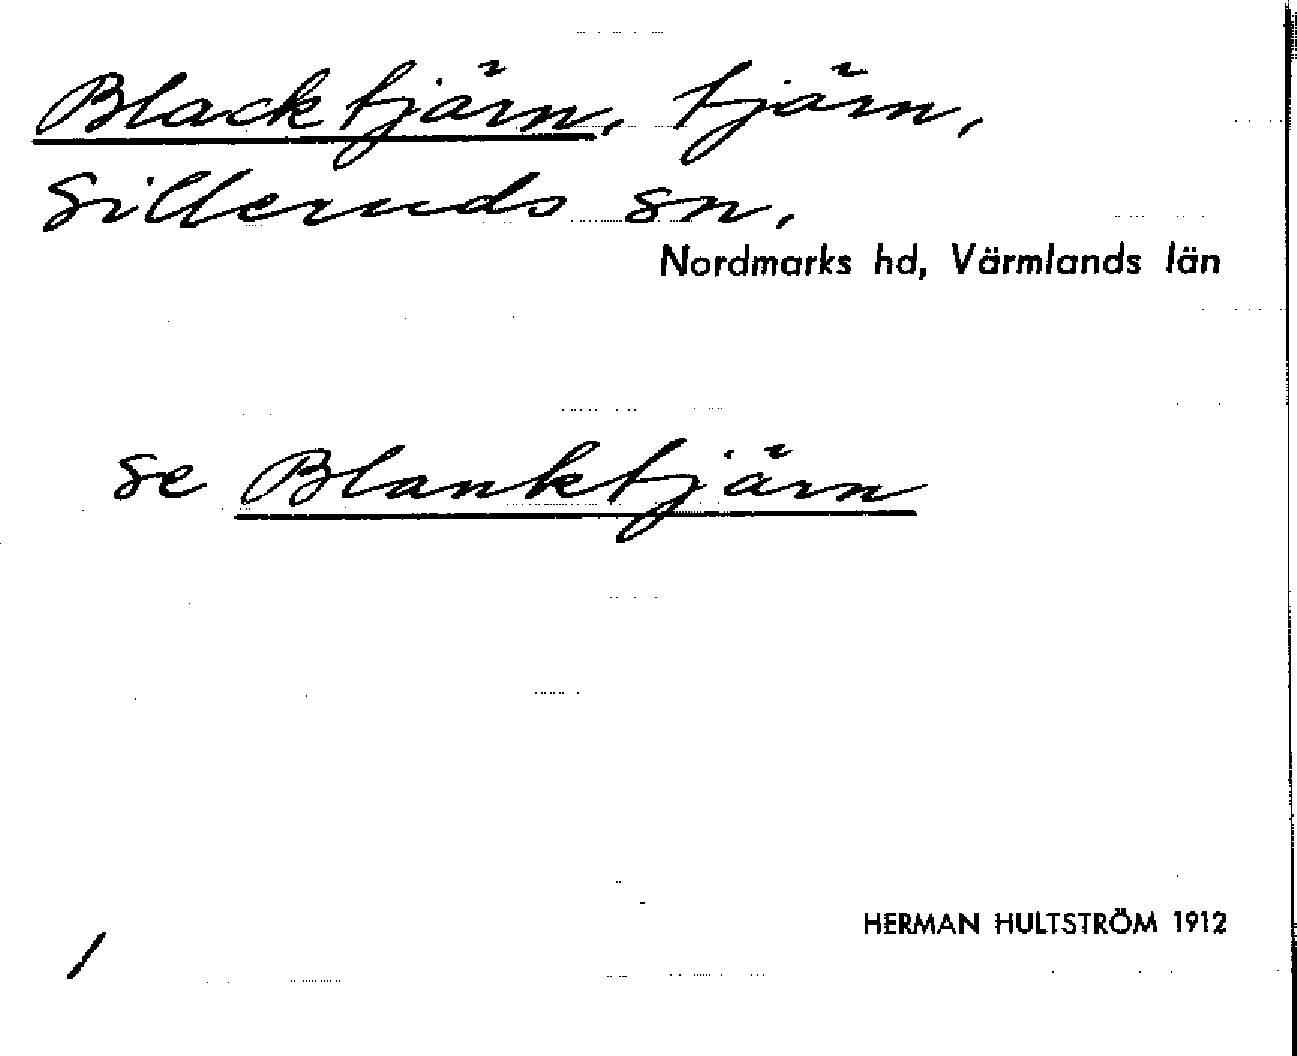 Blacktjärn, tjärn,
Silleruds sn,
Nordmarks hd, Värmlands län
se Blanktjärn
HERMAN HULTSTRÖM 1912
/